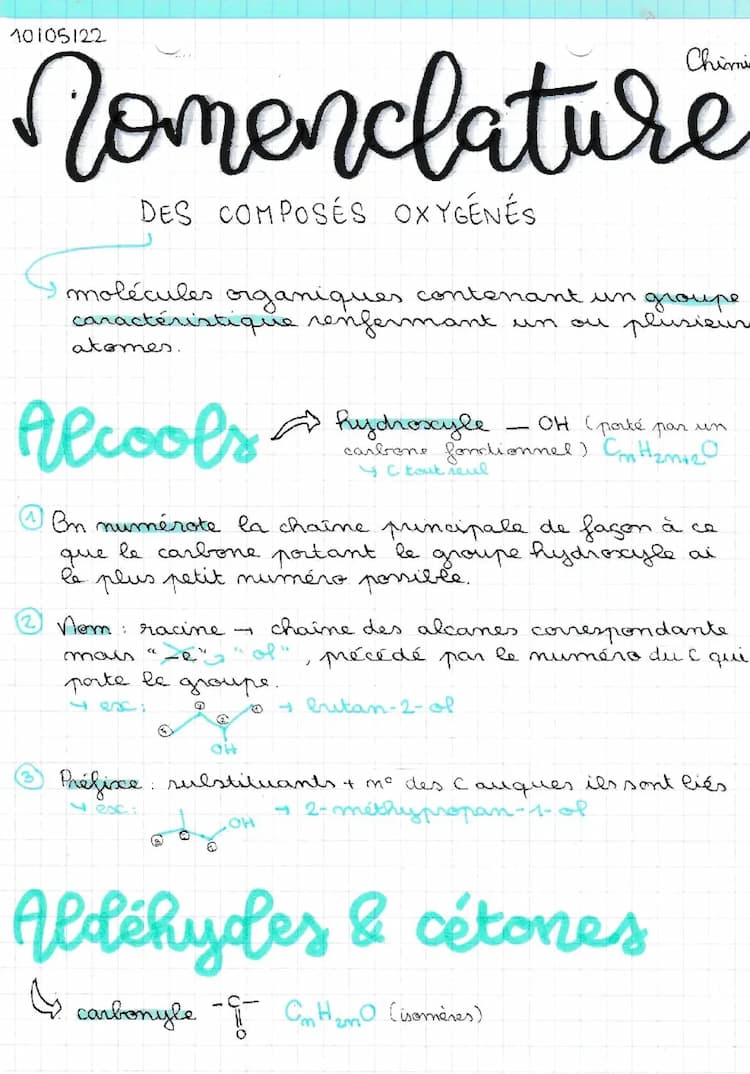 10/05/22
Chimi
Nomenclature
DES COMPOSÉS OXYGÉNÉS
molécules organiques contenant un groupe
caractéristique renfermant un ou plusieurs
atomes.
Alcools → hydroxyle — OH (porté par un
carbone fonctionnel) CnH2n+2O
↳ C tout seul
① On numérote la chaîne principale de façon à ce
que le carbone portant le groupe hydroxyle ai
le plus petit numéro possible.
② Nom : racine → chaîne des alcanes correspondante
mais "-e" → "ol", précédé par le numéro du C qui
porte le groupe.
↳ ex :
④ ③ ② ①
OH
→ butan-2-ol
③ Préfixe : substituants + n° des C auques ils sont liés
↳ ex :
③ ② ①
OH
→ 2-méthypropan-1-ol
Aldéhydes & cétones
carbonyle -C- CnH2nO (isomères)
O